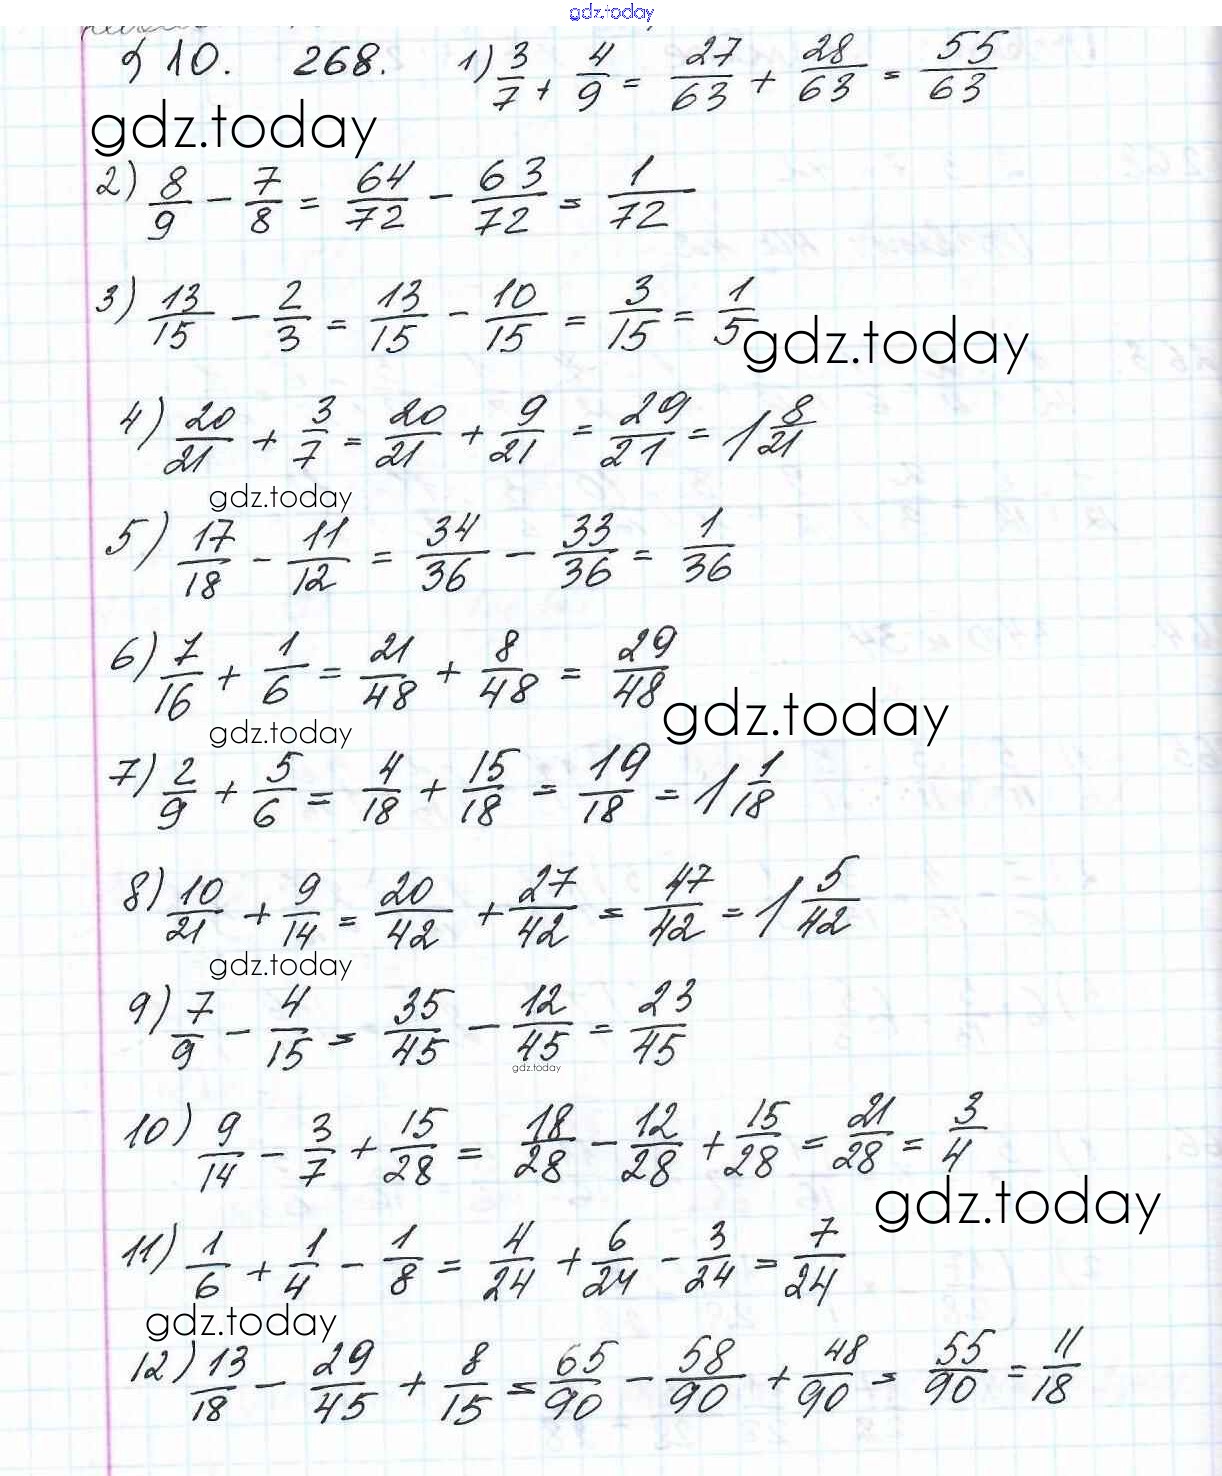 gdz.today
§ 10. 268. 1) 3/7 + 4/9 = 27/63 + 28/63 = 55/63
gdz.today
2) 8/9 - 7/8 = 64/72 - 63/72 = 1/72
3) 13/15 - 2/3 = 13/15 - 10/15 = 3/15 = 1/5
gdz.today
4) 20/21 + 3/7 = 20/21 + 9/21 = 29/21 = 1 8/21
gdz.today
5) 17/18 - 11/12 = 34/36 - 33/36 = 1/36
6) 7/16 + 1/6 = 21/48 + 8/48 = 29/48
gdz.today
gdz.today
7) 2/9 + 5/6 = 4/18 + 15/18 = 19/18 = 1 1/18
8) 10/21 + 9/14 = 20/42 + 27/42 = 47/42 = 1 5/42
gdz.today
9) 7/9 - 4/15 = 35/45 - 12/45 = 23/45
gdz.today
10) 9/14 - 3/7 + 15/28 = 18/28 - 12/28 + 15/28 = 21/28 = 3/4
gdz.today
11) 1/6 + 1/4 - 1/8 = 4/24 + 6/24 - 3/24 = 7/24
gdz.today
12) 13/18 - 29/45 + 8/15 = 65/90 - 58/90 + 48/90 = 55/90 = 11/18